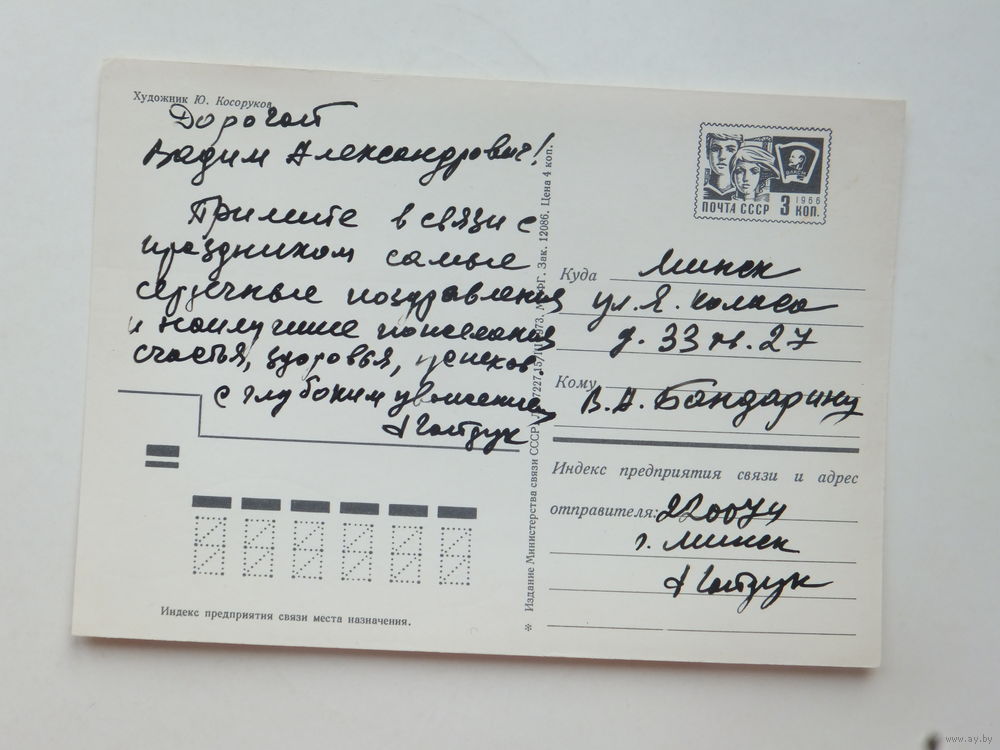 Художник Ю. Косоруков
Дорогой
Вадим Александрович!
Примите в связи с
праздником самые
сердечные поздравления
и наилучшие пожелания
счастья, здоровья, успехов.
с глубоким уважением
ПОЧТА СССР 3 КОП.
1966
ВЛКСМ
Куда Минск
ул. Я. Коласа
д. 33 кв. 27
Кому
В. А. Бондарину
Индекс предприятия связи и адрес
отправителя: 220074
г. Минск
Индекс предприятия связи места назначения.
Издание Министерства связи СССР. МПФГ. Зак. 12086. Цена 4 коп.
www.ay.by